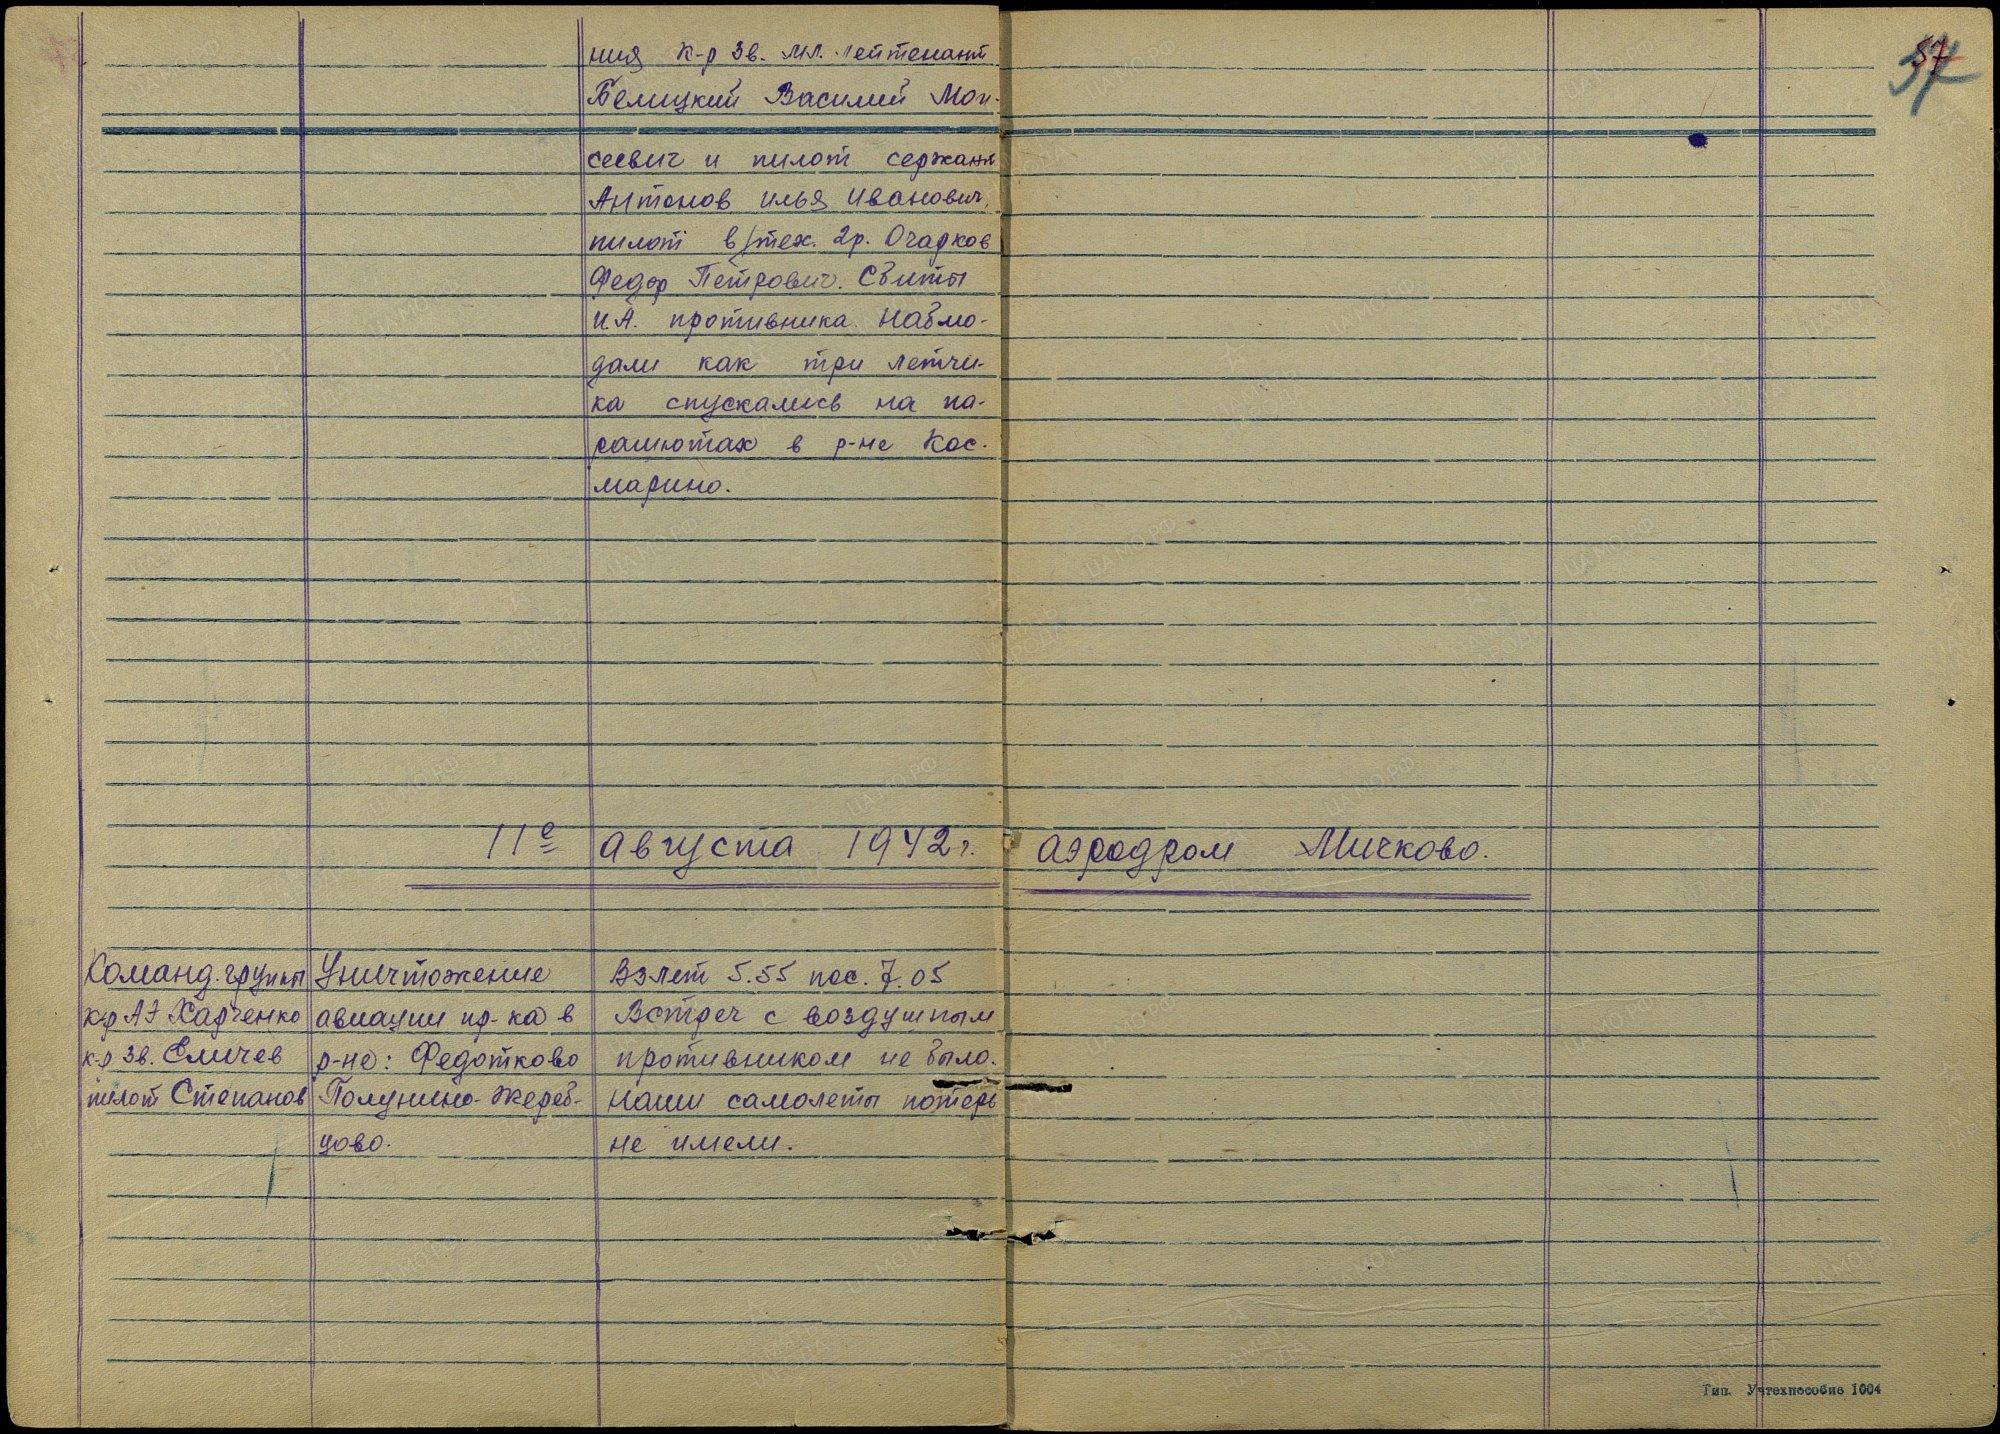 57
ния к-р Зв. мл. лейтенант
Белицкий Василий Мои-
сеевич и пилот сержант
Антонов илья иванович,
пилот в/тех. 2р. Очарков
Федор Петрович. Сбиты
И.А. противника. Наблю-
дали как три летчи-
ка спускались на па-
рашютах в р-не Кос-
марино.
11е августа 1942г. аэродром Мичково.
Команд. группы
к-р АЭ Харченко
к-р Зв. Еличев
пилот Степанов
Уничтожение
авиации пр-ка в
р-не: Федотково
Полунино-Жереб-
цово.
Взлет 5.55 пос. 7.05
Встреч с воздушным
противником не было.
Наши самолеты потерь
не имели.
Тип. Учтехпособие 1004